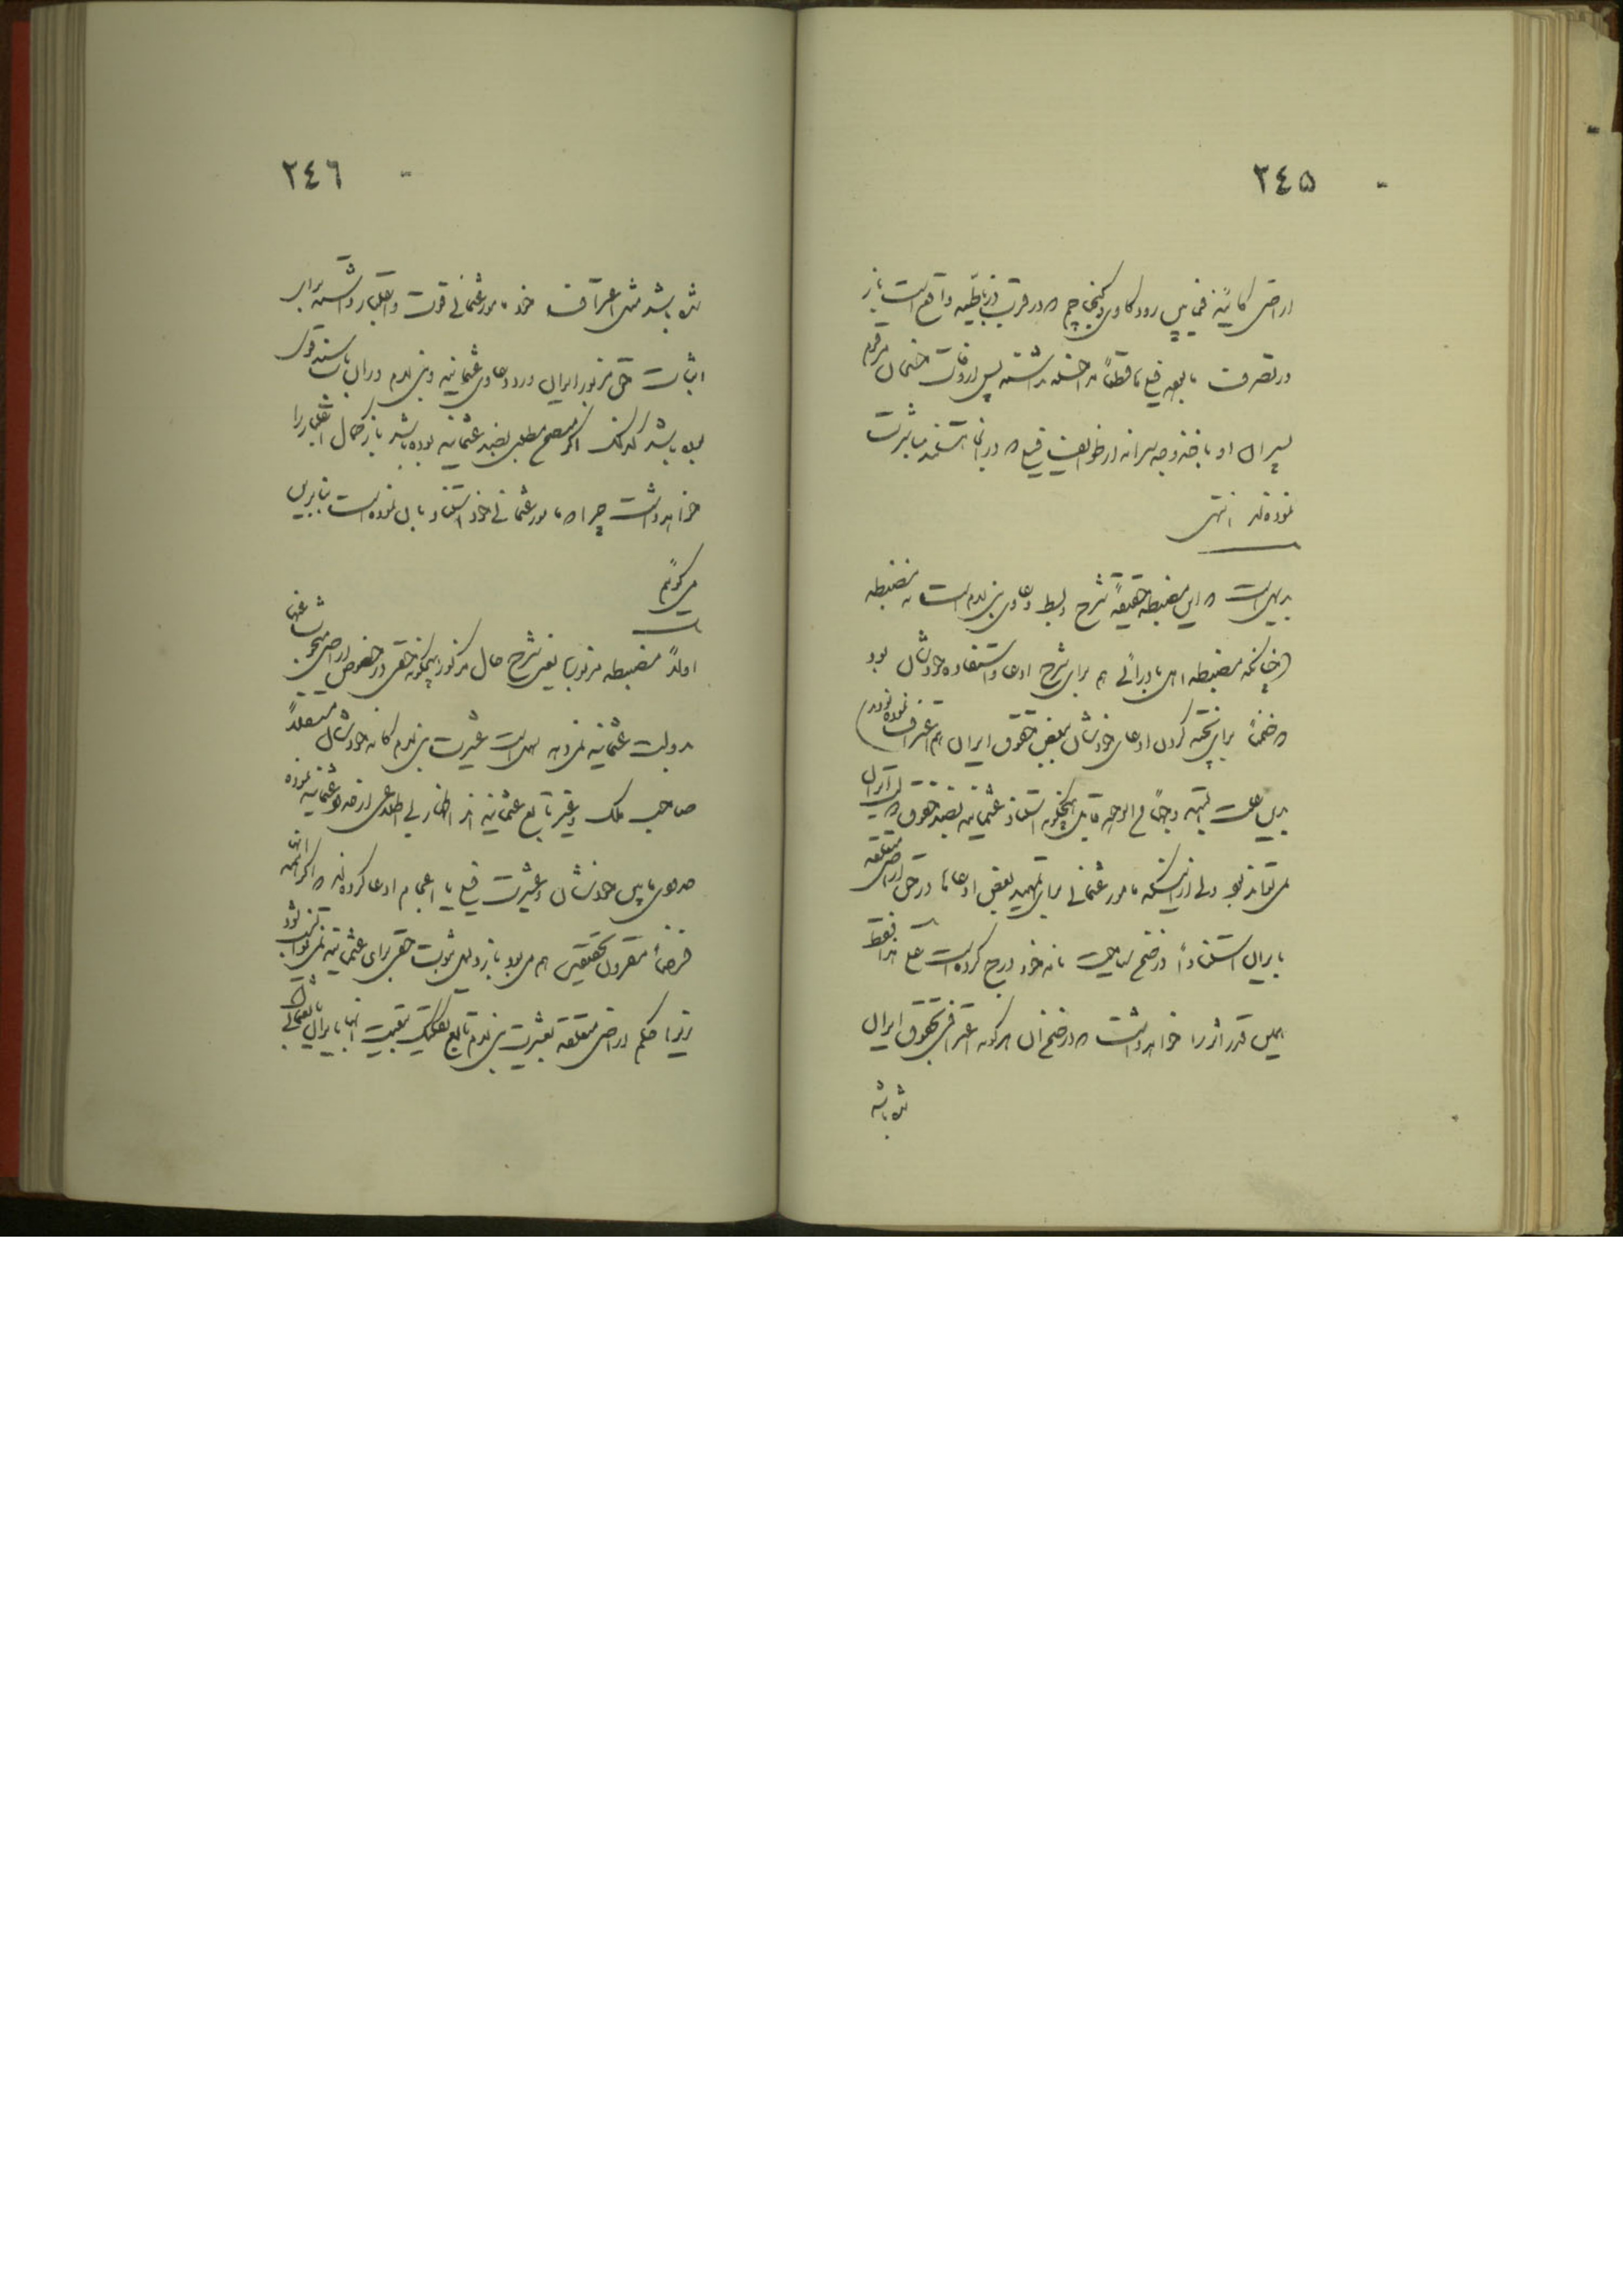 ٢٤٥
اراضی کائنه فیمابین رود کاوی و کنجانچم که در قرب ذرباطیه واقع است باز
در تصرف مداخله داشته پس از وفات مرقوم
پسران او باخذ وجه در آنجا هستند مباشرت
نموده‌اند انتهی
بدیهی است که این مضبطه حقیقةً شرح و بسط دعاوی بنی لام است نه مضبطه
(چنانکه مضبطه اهل بادرائی هم برای شرح ادعا و استفاده خودشان بود
که ضمناً برای پخته کردن ادعای خودشان ببعض حقوق ایران هم اعتراف نموده بودند)
بدین علت البته وجهاً من الوجوه قابل هیچگونه استناد عثمانیه بضد حقوق دولت ایران
نمی‌تواند بود ولی از اینکه مامور عثمانی برای تمهید بعض ادعاها در حق اراضی متعلقه
بایران استناداً در ضمن لایحه خود درج کرده است علی هذا فقط
همین قدر اثر را خواهد داشت که در ضمن آن هر گونه اعترافی بحقوق ایران
شده باشد
٢٤٦
شده باشد مثل اعتراف خود مامور عثمانی قوت و اعتبار داشته برای
اثبات حق مزبور ایران و رد دعاوی عثمانیه و بنی لام در آن باب سند قوی
بوده باشد لکن اگر متضمن مطلبی بضد عثمانیه بوده باشد باز کمال اعتبار را
خواهد داشت چرا که مامور عثمانی خود استناد بآن نموده است بنابرین
می‌گوئیم
اولاً مضبطه مزبور یا یعنی شرح حال مذکور هیچگونه حقی در خصوص اراضی مبحوث عنها
بدولت عثمانیه نمی‌دهد بنی لام که خودشان مستقلاً
صاحب ملک و غیر تابع عثمانیه اند اظهار بی اطلاعی از عثمانیه نموده
خودشان و عشیرت فیلی یا اعجام ادعا کرده‌اند که اگر آنها
فرضاً مقرون بحقیقت هم می‌بود باز دلیل ثبوت حقی برای عثمانیه نمی‌تواند شد
زیرا حکم اراضی متعلقه بعشیرت بنی لام تابع تبعیت آنها بایران یا بعثمانی